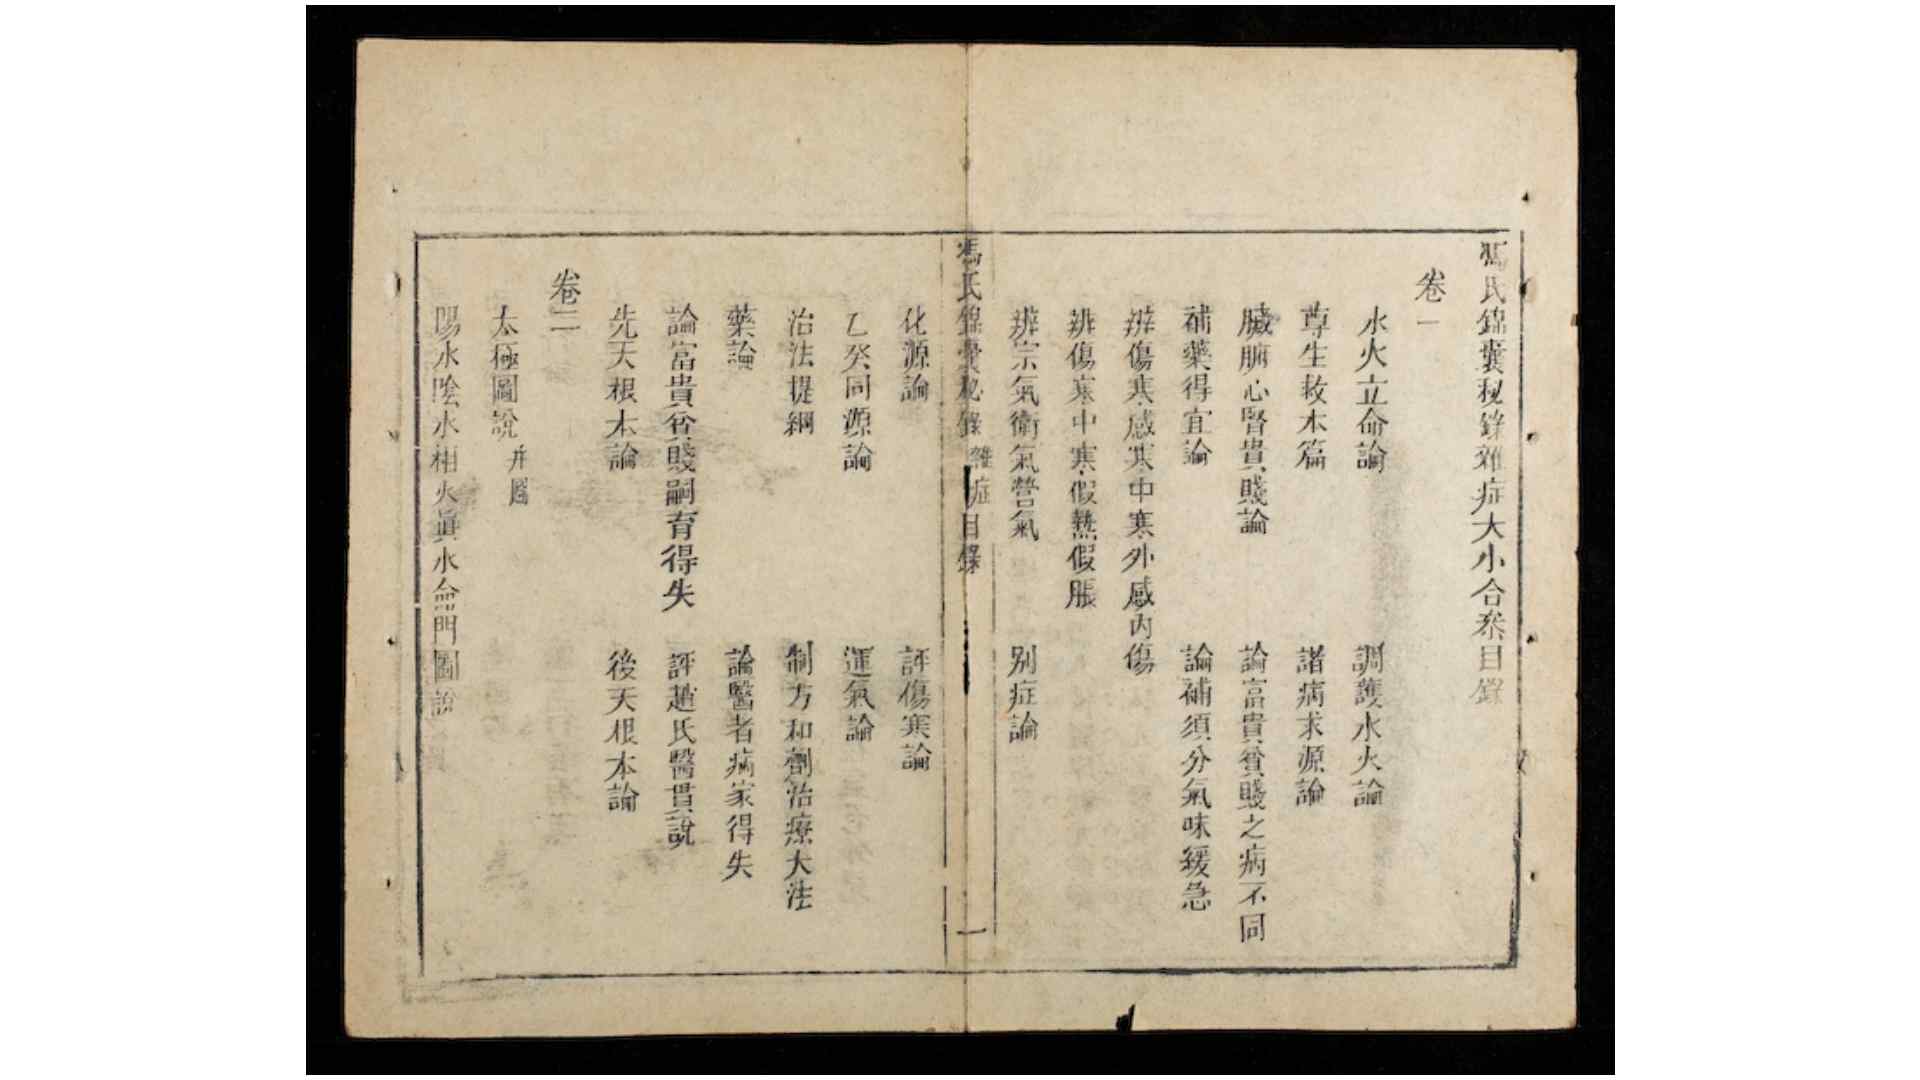 馮氏錦囊秘錄雜症大小合叅目錄
卷一
水火立命論　調護水火論
尊生救本篇　諸病求源論
臟腑心腎貴賤論　論富貴貧賤之病不同
補藥得宜論　論補須分氣味緩急
辨傷寒感寒中寒外感内傷
辨傷寒中寒假熱假脹
辨宗氣衛氣營氣　别症論
馮氏錦囊秘錄 雜症 目錄 一
化源論　評傷寒論
乙癸同源論　運氣論
治法提綱　制方和劑治療大法
藥論　論醫者病家得失
論富貴貧賤嗣育得失　評趙氏醫貫説
先天根本論　後天根本論
卷二
太極圖説 并圖
陽水陰水相火眞水命門圖説